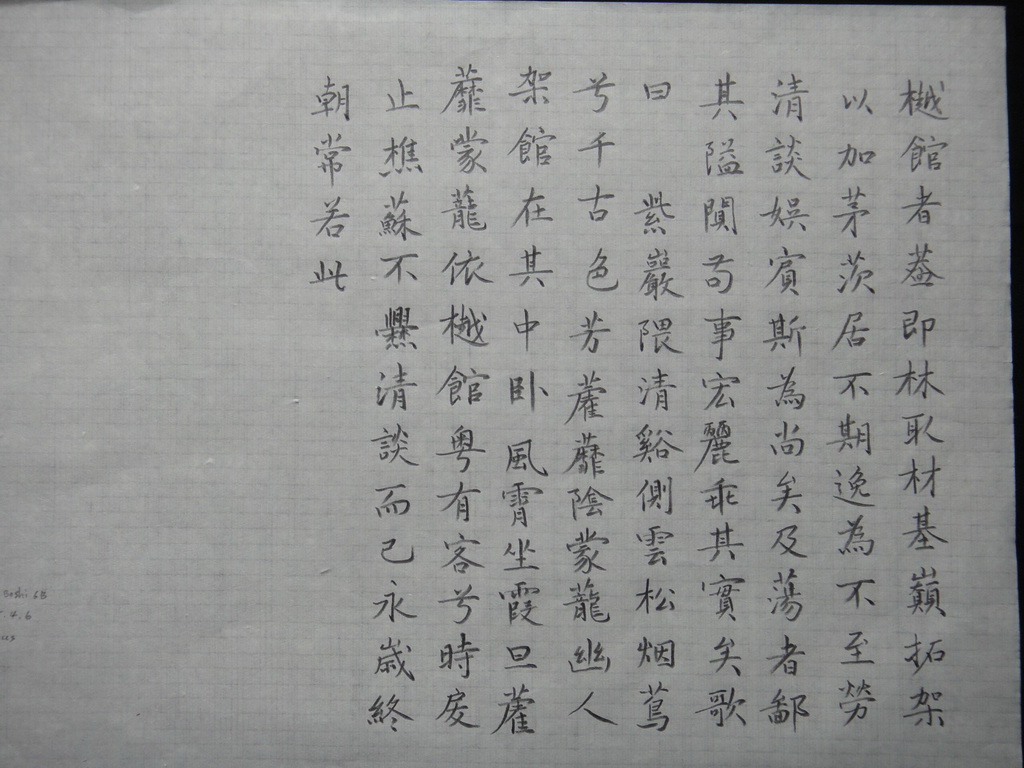 樾館者蓋即林取材基巔拓架
以加茅茨居不期逸為不至勞
清談娛賓斯為尚矣及蕩者鄙
其隘闃苟事宏麗乖其實矣歌
曰 紫巖隈清谿側雲松烟蔦
兮千古色芳藿蘼陰蒙蘢幽人
架館在其中卧風霄坐霞旦藿
蘼蒙蘢依樾館粵有客兮時戾
止樵蘇不爨清談而已永歲終
朝常若此
4.6